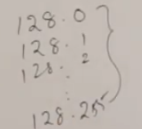 128.0
128.1
128.2
:
128.255